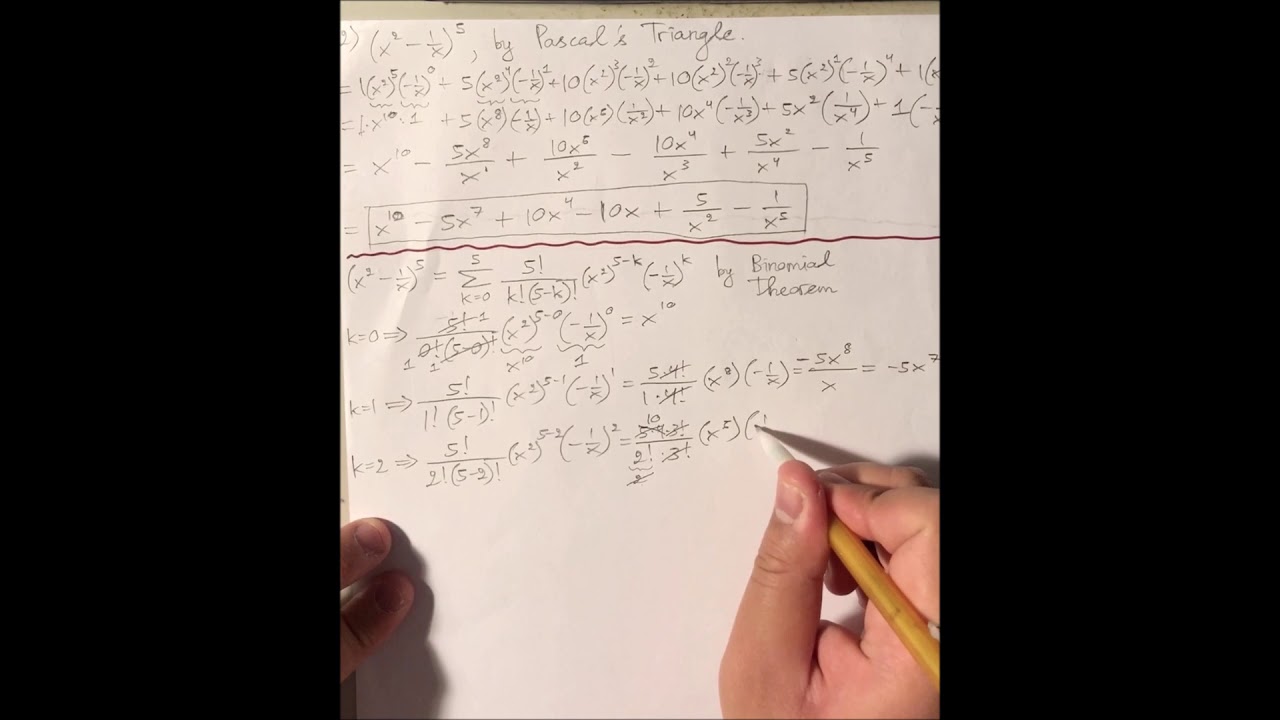 2) (x² - 1/x)⁵, by Pascal's Triangle.
= 1(x²)⁵(-1/x)⁰ + 5(x²)⁴(-1/x)¹ + 10(x²)³(-1/x)² + 10(x²)²(-1/x)³ + 5(x²)¹(-1/x)⁴ + 1(x
= 1·x¹⁰·1 + 5(x⁸)(-1/x) + 10(x⁶)(1/x²) + 10x⁴(-1/x³) + 5x²(1/x⁴) + 1(-
= x¹⁰ - 5x⁸/x¹ + 10x⁶/x² - 10x⁴/x³ + 5x²/x⁴ - 1/x⁵
= x¹⁰ - 5x⁷ + 10x⁴ - 10x + 5/x² - 1/x⁵
(x² - 1/x)⁵ = ∑ₖ₌₀⁵ 5!/(k!(5-k)!) (x²)⁵⁻ᵏ (-1/x)ᵏ by Binomial Theorem
k=0 ⇒ 5!/(0!(5-0)!) (x²)⁵⁻⁰ (-1/x)⁰ = x¹⁰
1 1 1 x¹⁰ 1
k=1 ⇒ 5!/(1!(5-1)!) (x²)⁵⁻¹ (-1/x)¹ = 5·4!/(1·4!) (x⁸)(-1/x) = -5x⁸/x = -5x⁷
10
k=2 ⇒ 5!/(2!(5-2)!) (x²)⁵⁻² (-1/x)² = 5·4·3!/(2!·3!) (x⁶)(1
2